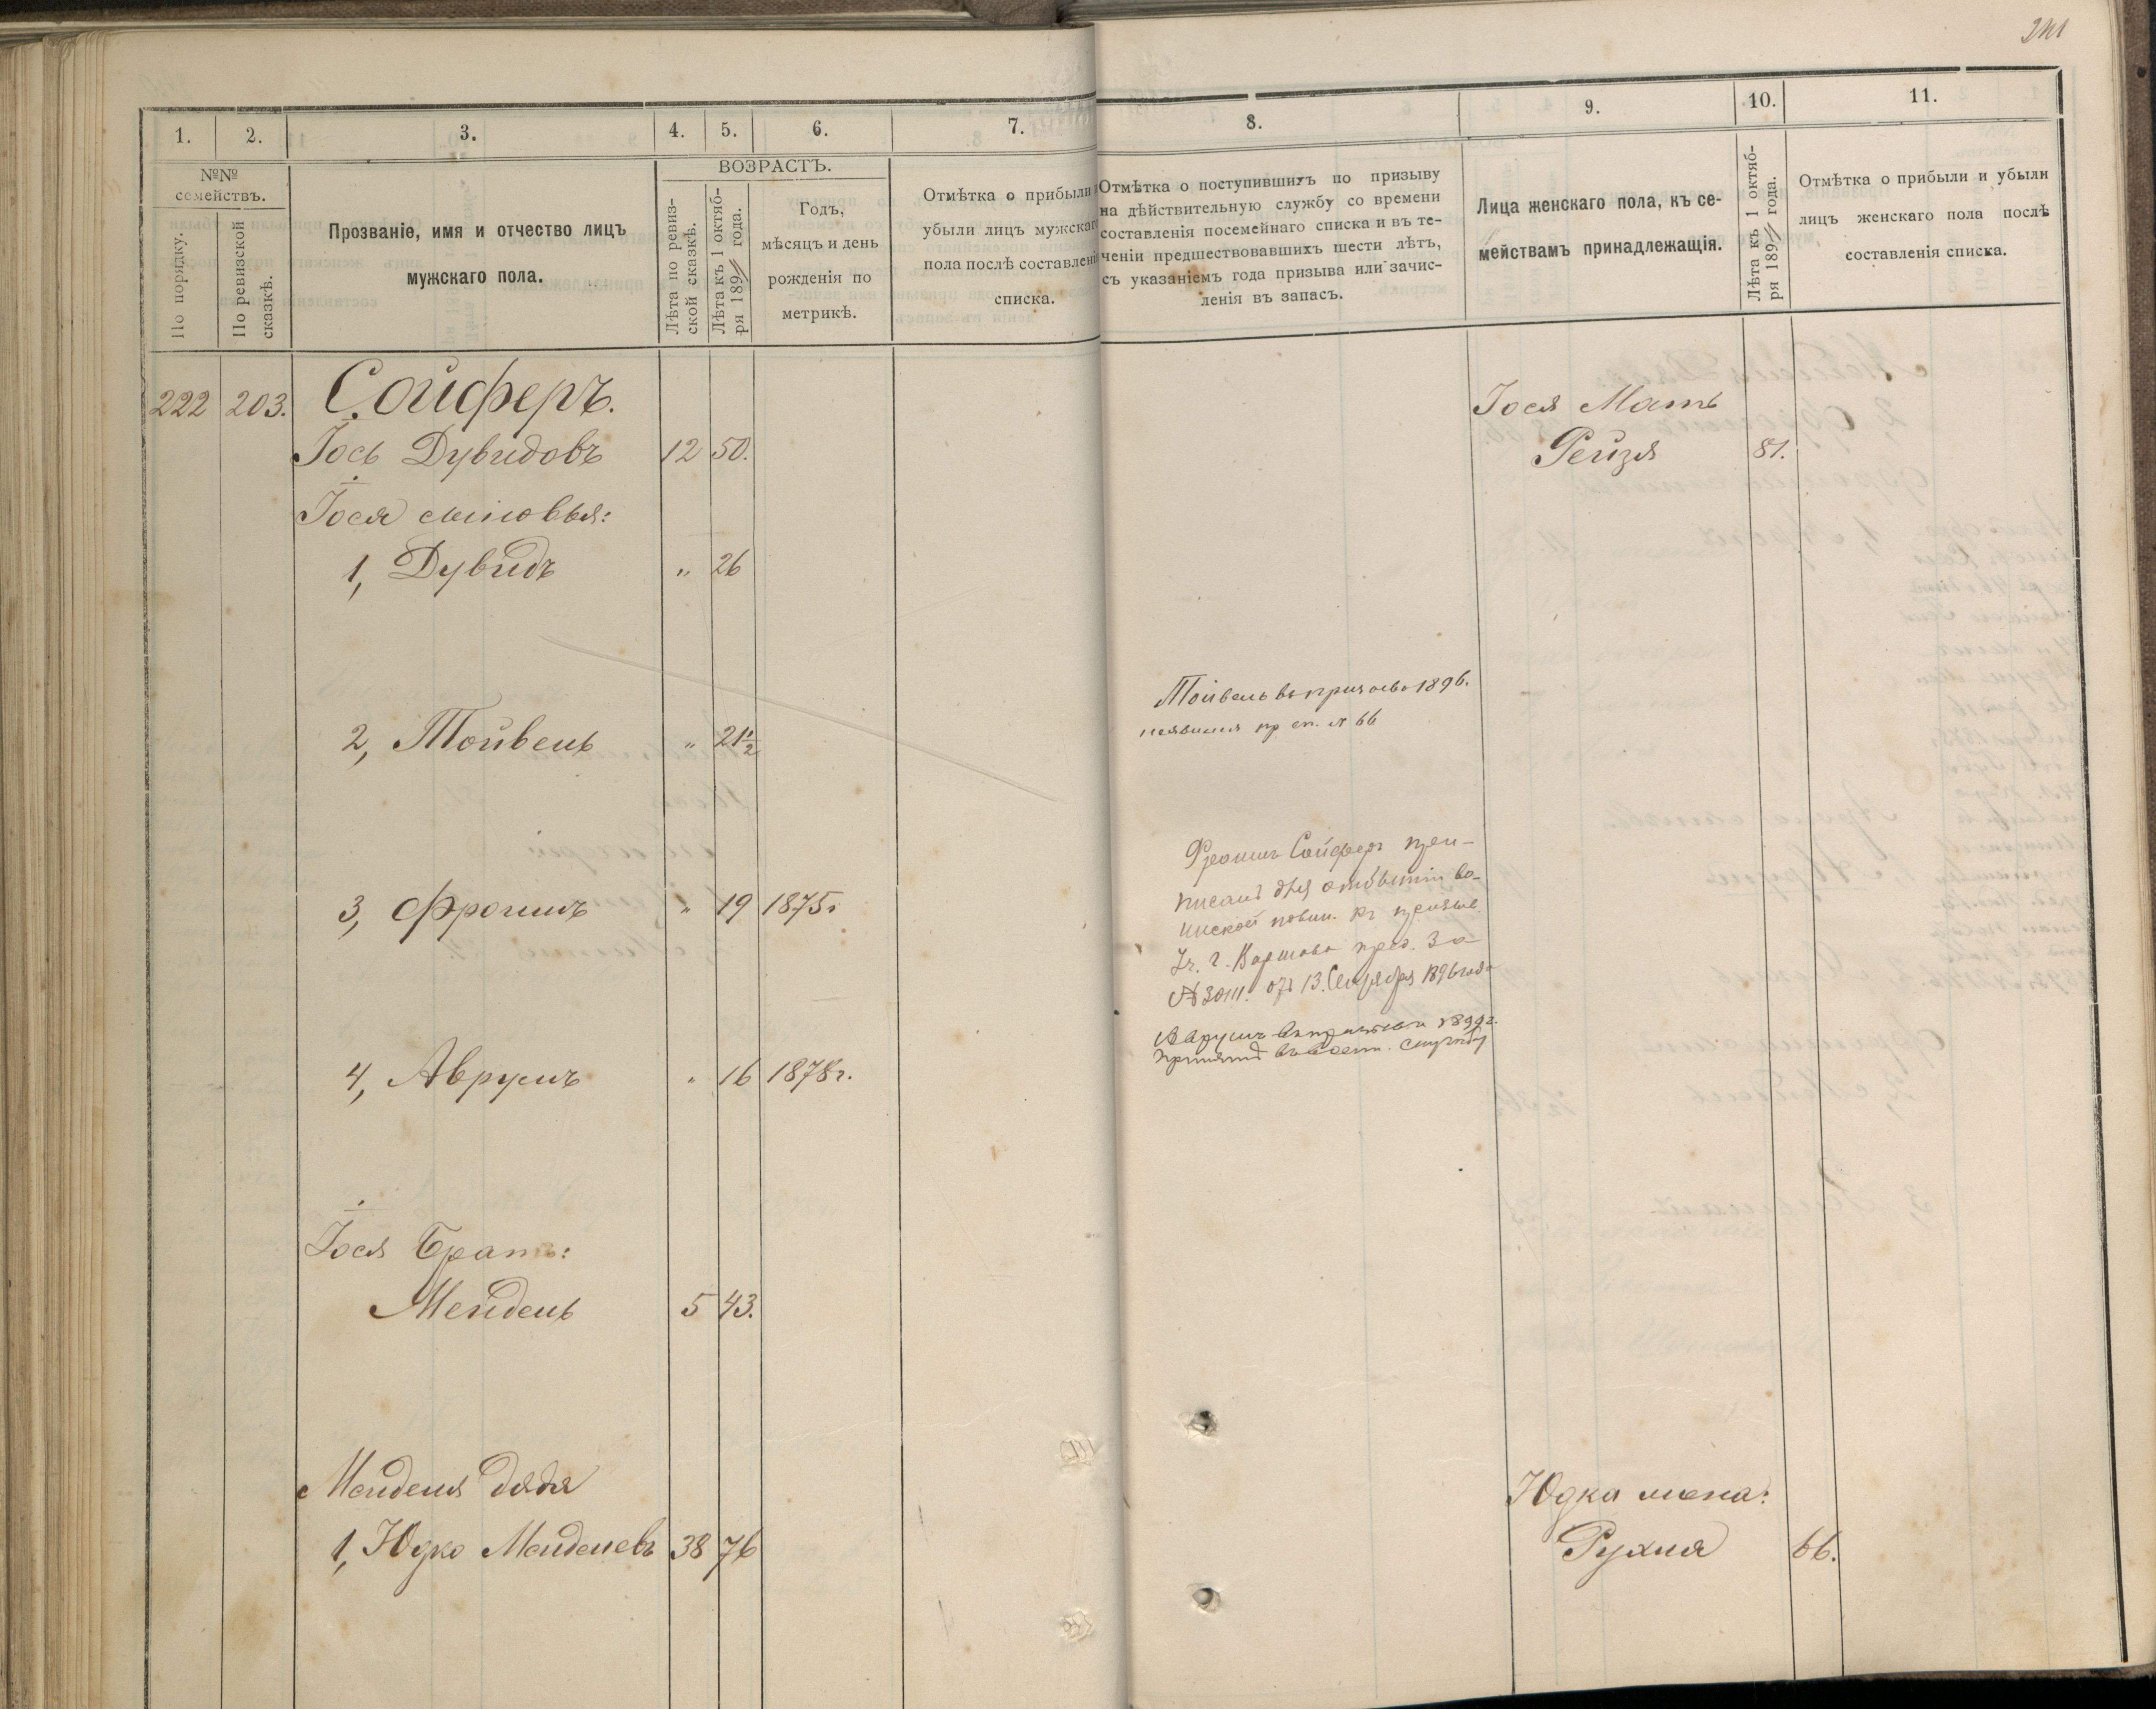 241
1. 2. 3. 4. 5. 6. 7. 8. 9. 10. 11.
№№
семействъ.
По порядку.
По ревизской
сказкѣ.
Прозваніе, имя и отчество лицъ
мужскаго пола.
ВОЗРАСТЪ.
Лѣта по ревиз-
ской сказкѣ.
Лѣта къ 1 октяб-
ря 189 года.
Годъ,
мѣсяцъ и день
рожденія по
метрикѣ.
Отмѣтка о прибыли и
убыли лицъ мужскаго
пола послѣ составленія
списка.
Отмѣтка о поступившихъ по призыву
на дѣйствительную службу со времени
составленія посемейнаго списка и въ те-
ченіи предшествовавшихъ шести лѣтъ,
съ указаніемъ года призыва или зачис-
ленія въ запасъ.
Лица женскаго пола, къ се-
мействамъ принадлежащія.
Лѣта къ 1 октяб-
ря 189 года.
Отмѣтка о прибыли и убыли
лицъ женскаго пола послѣ
составленія списка.
222 203. Сойферъ.
Іось Дувидовъ 12 50.
Іося сыновья:
1, Дувидъ „ 26
2, Тойвель „ 21½
3, Фроимъ „ 19 1875г
4, Аврумъ „ 16 1878г.
Іося Братъ:
Мендель 5 43.
Менделя дядя
1, Юдко Менделевъ 38 76
Тойвель въ призывѣ 1896.
неявился пр. сп. № 66
Фроимъ Сойферъ при-
писанъ для отбытія во-
инской повин. къ призыв.
Уч. г. Варшава пред. За
№ от 13. Сентября 1896 года
Аврумъ въ призывѣ 1899г.
принятъ въ воен. службу
Іося Мать
Рейзя 81.
Юдка жена:
Рухля 66.